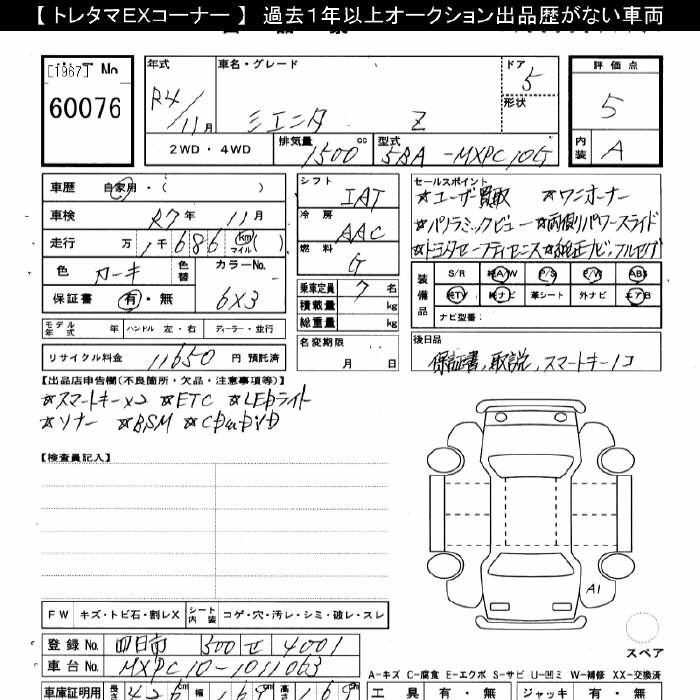 【トレタマEXコーナー】 過去1年以上オークション出品歴がない車両
[1967] No
60076
年式 車名・グレード ドア 5 評価点
R4/11月 シエンタ Z 形状 5
2WD・4WD 排気量 1500 cc 型式 5BA-MXPC10G 内装 A
車歴 自家用・( )
車検 R7年 11月
走行 万 1千686 km マイル( )
色 カーキ 色替 カラーNo. 6X3
保証書 有・無
モデル年式 年 ハンドル 左・右 ディーラー・並行
リサイクル料金 11650 円 預託済
シフト IAT
冷房 AAC
燃料 G
乗車定員 7 名
積載量 kg
総重量 kg
名変期限 月 日
セールスポイント
☆ユーザー買取 ☆ワンオーナー
☆パノラミックビュー ☆両側パワースライド
☆トヨタセーフティセンス ☆純正ナビ,フルセグ
装備品 S/R 純A/W P/S P/W ABS
純TV 純ナビ 革シート 外ナビ エアB
ナビ型番:
後日品
保証書,取説,スマートキー1コ
【出品店申告欄(不良箇所・欠品・注意事項等)】
☆スマートキー×2 ☆ETC ☆LEDライト
☆ソナー ☆BSM
【検査員記入】
FW キズ・トビ石・割レX シート内装 コゲ・穴・汚レ・シミ・破レ・スレ
A1
スペア
登録No. 四日市 300 せ 4001
車台No. MXPC10-1011063
A−キズ C−腐食 E−エクボ S−サビ U−凹ミ W−補修 XX−交換済
車庫証明用 長さ 426 幅 169 高さ 169
工具 有・無 ジャッキ 有・無